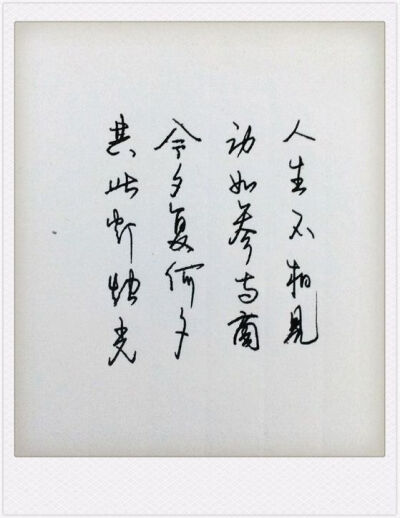 人生不相见
动如参与商
今夕复何夕
共此灯烛光